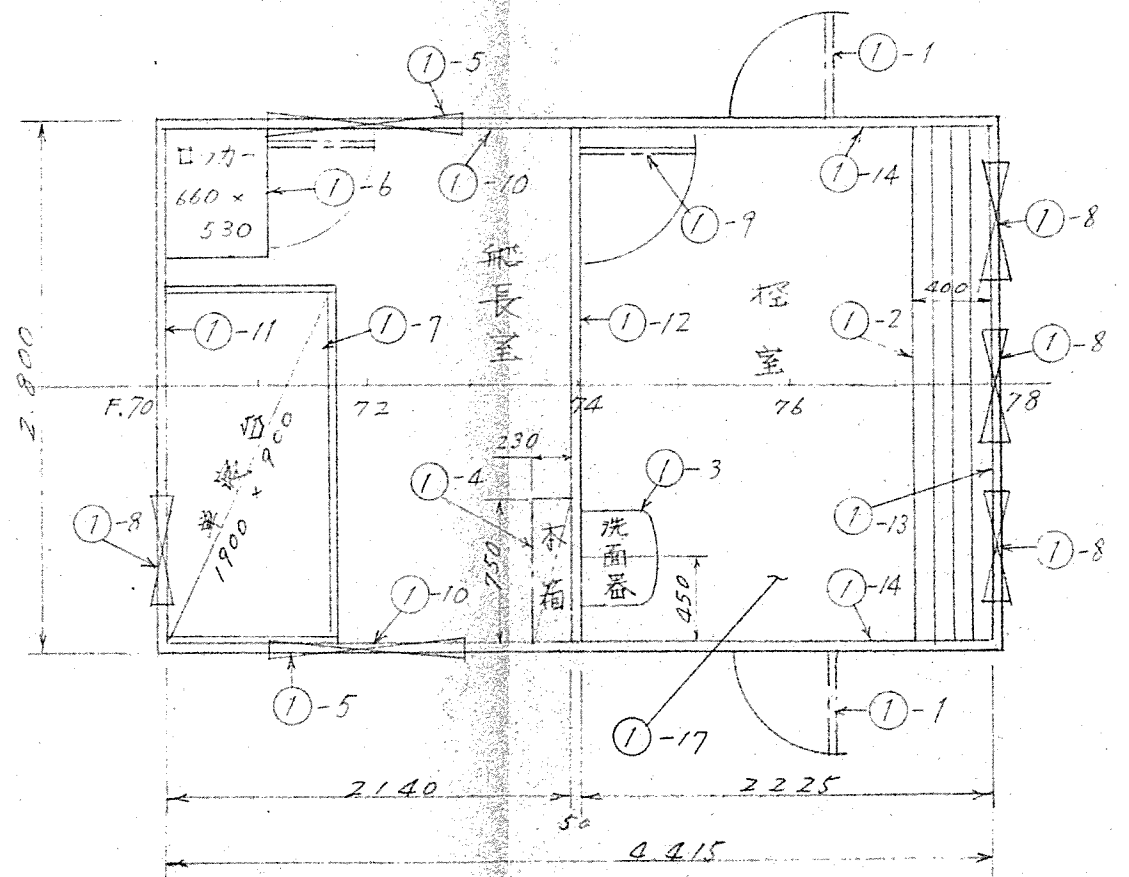 ①-5
①-1
ロッカー
660 ×
530
①-6
①-10
①-9
①-14
①-8
船長室
控室
400
①-11
①-7
①-12
①-2
①-8
2.800
F.70
72
74
76
78
1900 × 900
230
①-4
①-3
①-8
750
洗面器
450
①-13
①-8
①-10
①-14
①-5
①-17
①-1
2140
2225
50
4.415